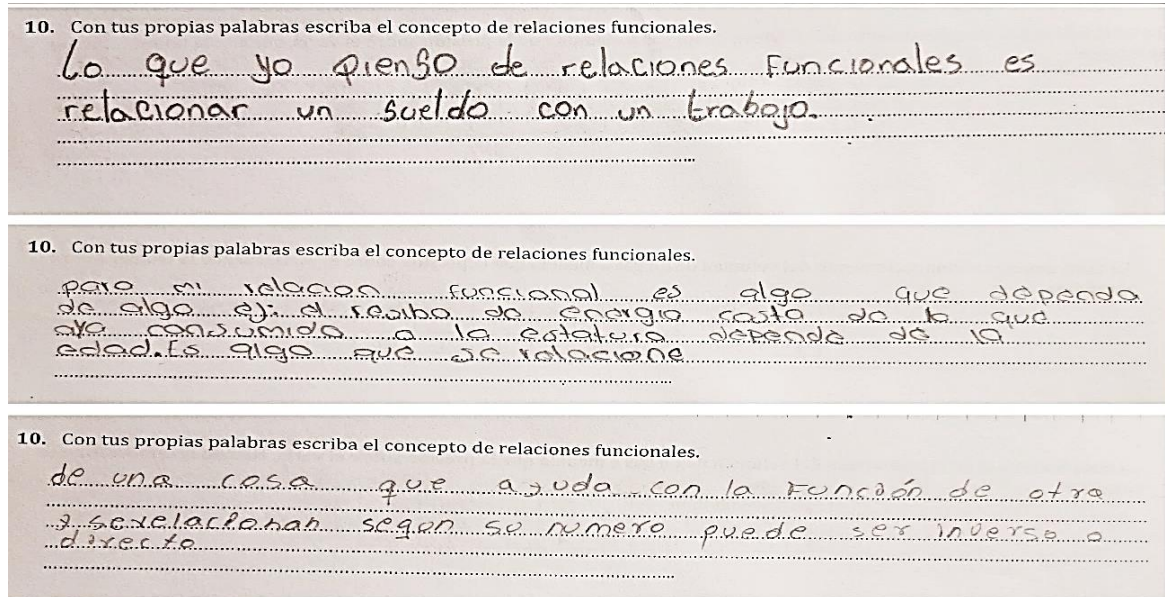 10. Con tus propias palabras escriba el concepto de relaciones funcionales.
Lo que yo pienso de relaciones funcionales es
relacionar un sueldo con un trabajo.
10. Con tus propias palabras escriba el concepto de relaciones funcionales.
para mi relacion funcional es algo que dependa
de algo ej: el recibo de energia casta de lo que
aya consumido o la estatura depende de la
edad. Es algo que se relacione
10. Con tus propias palabras escriba el concepto de relaciones funcionales.
de una cosa que ayuda con la función de otra
y se relacionan segun su numero puede ser inverso o
directo